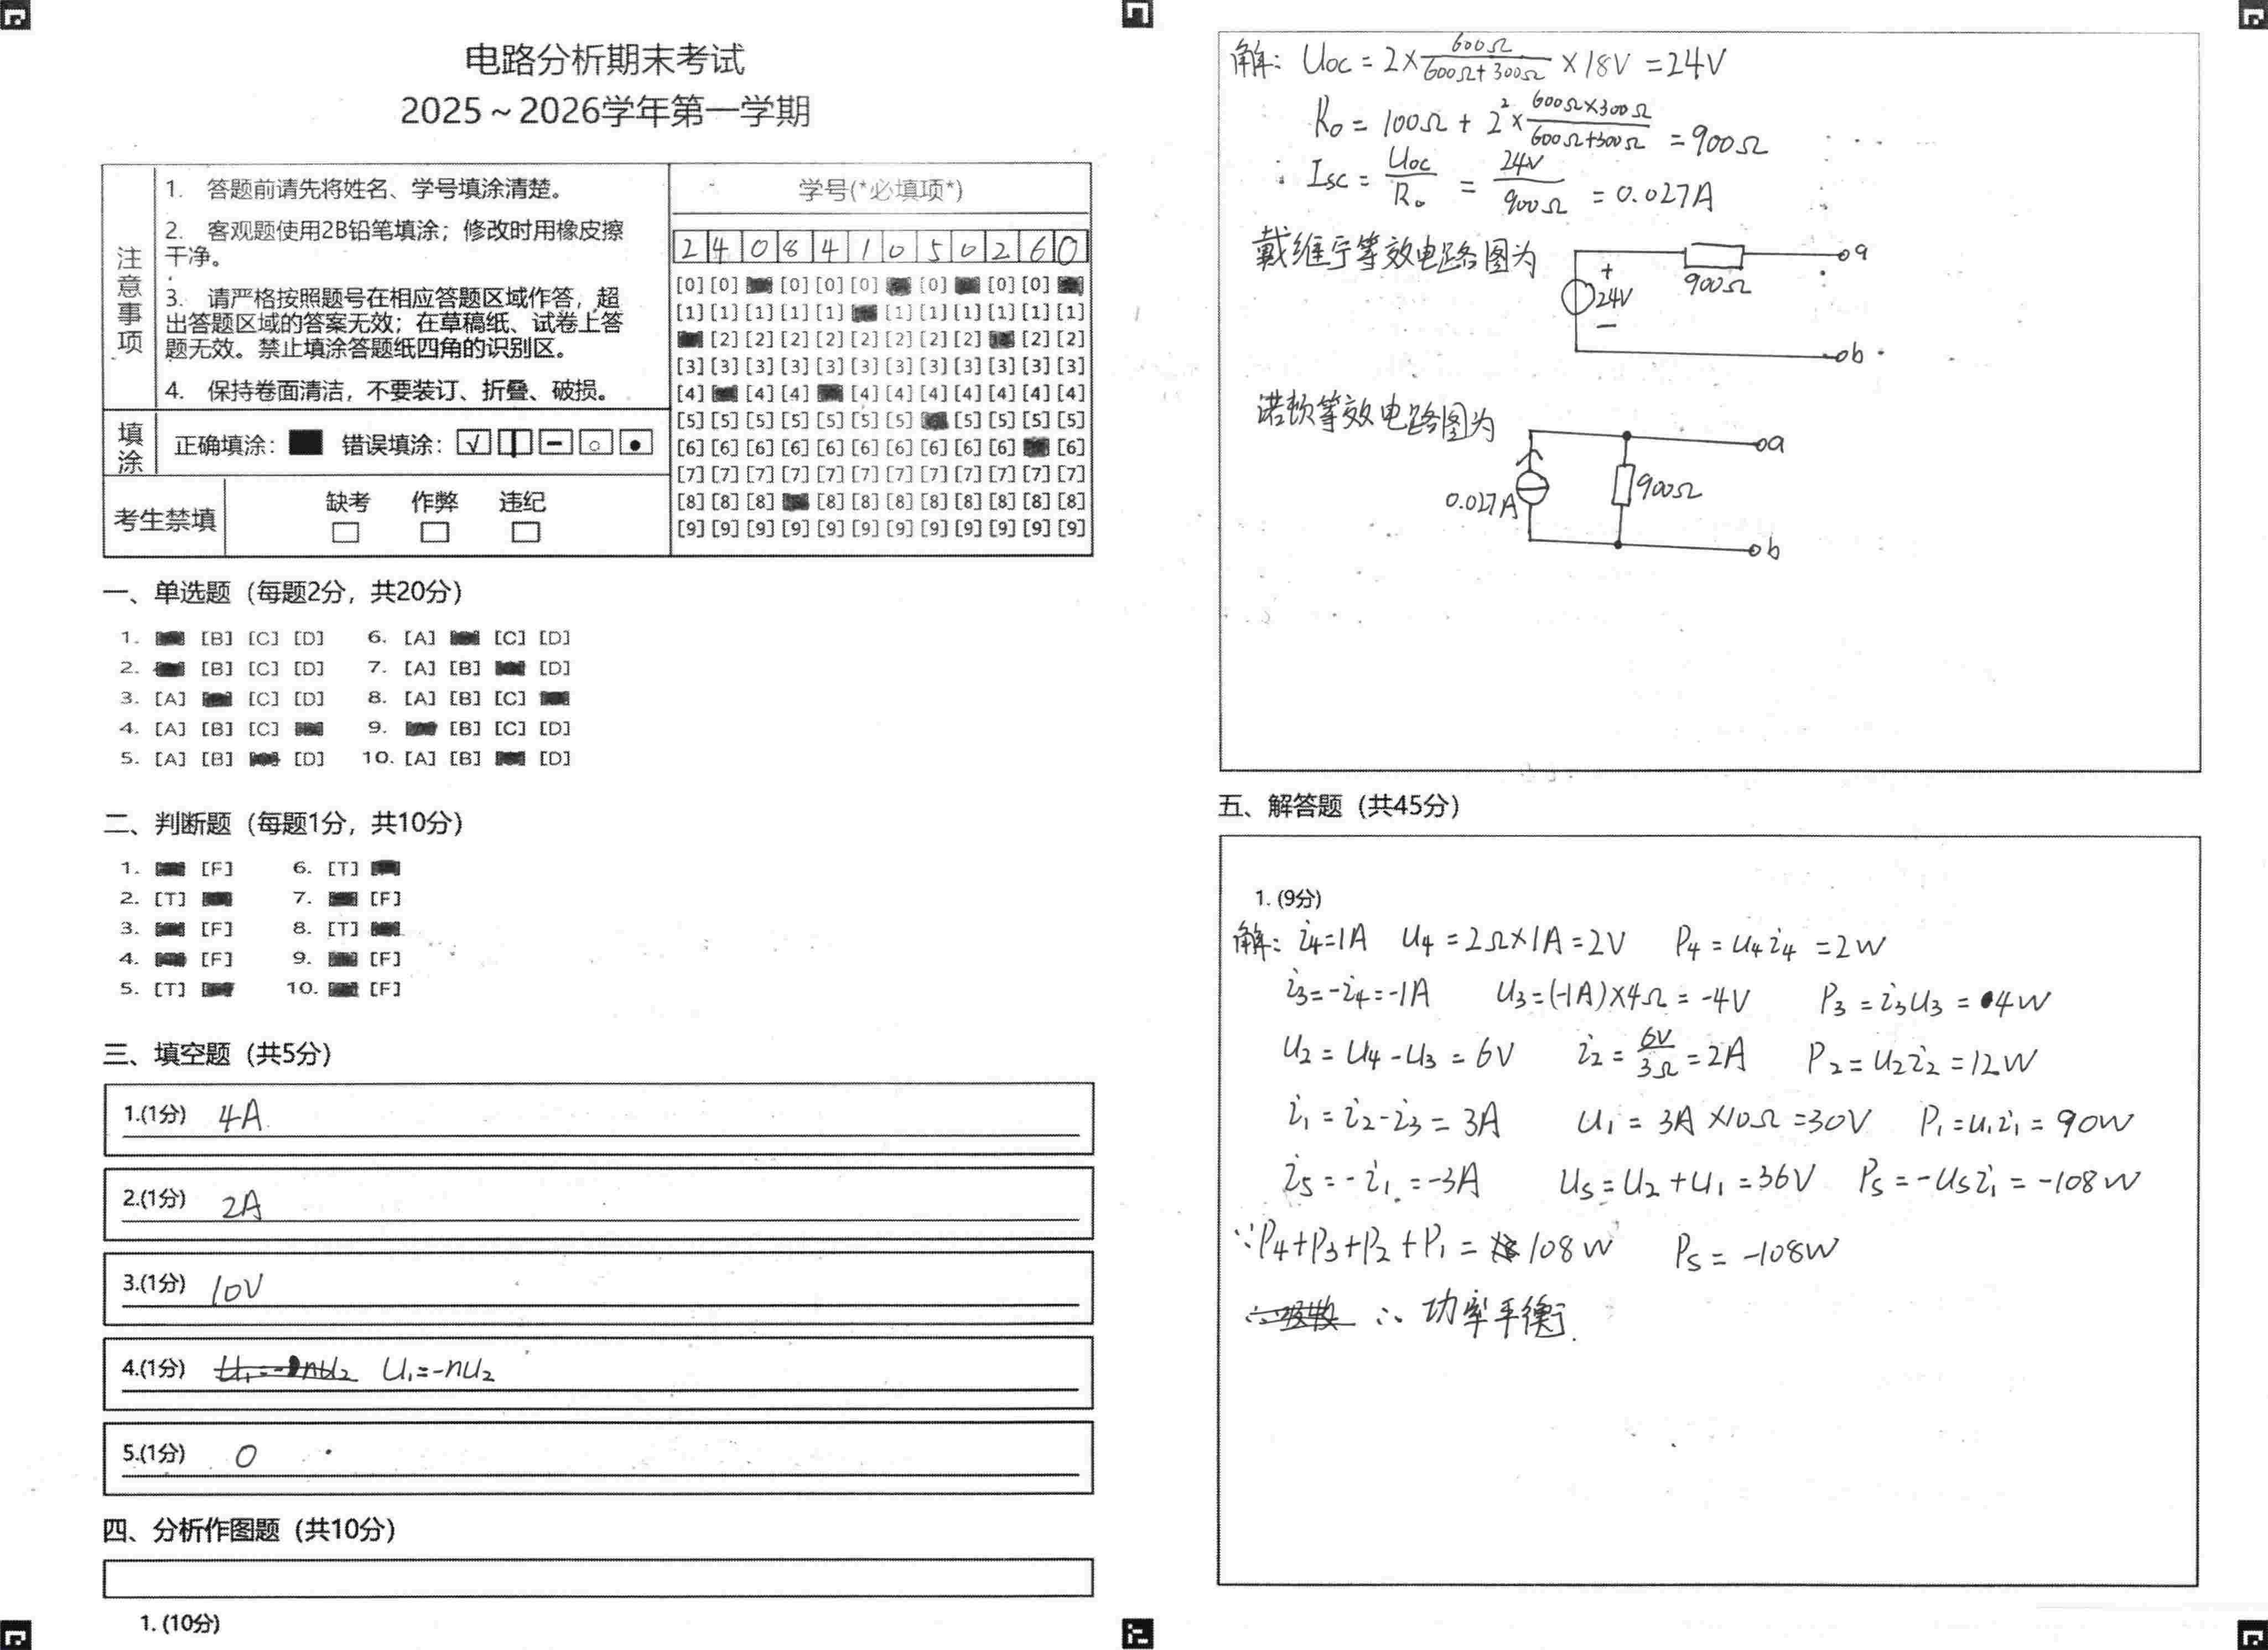 电路分析期末考试
2025～2026学年第一学期
注意事项
1. 答题前请先将姓名、学号填涂清楚。
2. 客观题使用2B铅笔填涂；修改时用橡皮擦
干净。
3. 请严格按照题号在相应答题区域作答，超
出答题区域的答案无效；在草稿纸、试卷上答
题无效。禁止填涂答题纸四角的识别区。
4. 保持卷面清洁，不要装订、折叠、破损。
填涂 正确填涂： 错误填涂：
考生禁填 缺考 作弊 违纪
学号(*必填项*)
2 4 0 8 4 1 0 5 0 2 6 0
[0] [0] [0] [0] [0] [0] [0] [0]
[1] [1] [1] [1] [1] [1] [1] [1] [1] [1] [1]
[2] [2] [2] [2] [2] [2] [2] [2] [2] [2]
[3] [3] [3] [3] [3] [3] [3] [3] [3] [3] [3] [3]
[4] [4] [4] [4] [4] [4] [4] [4] [4] [4]
[5] [5] [5] [5] [5] [5] [5] [5] [5] [5] [5]
[6] [6] [6] [6] [6] [6] [6] [6] [6] [6] [6]
[7] [7] [7] [7] [7] [7] [7] [7] [7] [7] [7] [7]
[8] [8] [8] [8] [8] [8] [8] [8] [8] [8] [8]
[9] [9] [9] [9] [9] [9] [9] [9] [9] [9] [9] [9]
一、单选题（每题2分，共20分）
1. [B] [C] [D] 6. [A] [C] [D]
2. [B] [C] [D] 7. [A] [B] [D]
3. [A] [C] [D] 8. [A] [B] [C]
4. [A] [B] [C] 9. [B] [C] [D]
5. [A] [B] [D] 10. [A] [B] [D]
二、判断题（每题1分，共10分）
1. [F] 6. [T]
2. [T] 7. [F]
3. [F] 8. [T]
4. [F] 9. [F]
5. [T] 10. [F]
三、填空题（共5分）
1.(1分) 4A
2.(1分) 2A
3.(1分) 10V
4.(1分) U₁=-nU₂
5.(1分) 0
四、分析作图题（共10分）
1. (10分)
解: Uoc = 2×600Ω/(600Ω+300Ω) ×18V =24V
R₀ = 100Ω + 2²×(600Ω×300Ω)/(600Ω+300Ω) = 900Ω
Isc = Uoc/R₀ = 24V/900Ω = 0.027A
戴维宁等效电路图为
a
900Ω
+
24V
−
b
诺顿等效电路图为
a
900Ω
0.027A
b
五、解答题（共45分）
1. (9分)
解: i₄=1A U₄=2Ω×1A=2V P₄=U₄i₄=2W
i₃=-i₄=-1A U₃=(-1A)×4Ω=-4V P₃=i₃U₃=4W
U₂=U₄-U₃=6V i₂=6V/3Ω=2A P₂=U₂i₂=12W
i₁=i₂-i₃=3A U₁=3A×10Ω=30V P₁=U₁i₁=90W
i₅=-i₁=-3A Us=U₂+U₁=36V Ps=-Usi₁=-108W
∵P₄+P₃+P₂+P₁=108W Ps=-108W
∴ 功率平衡.